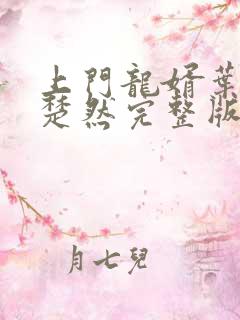 上門龍婿葉
楚然完整版
月七兒